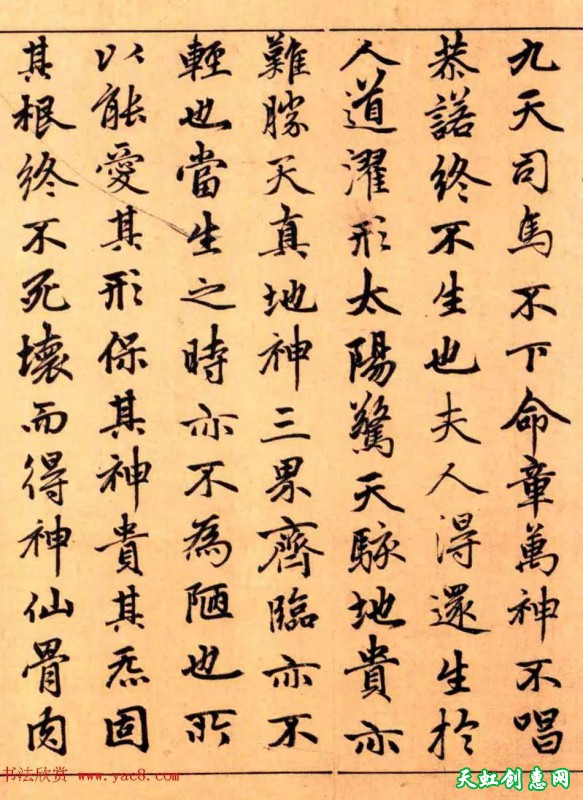 九天司馬不下命章萬神不唱
恭諾終不生也夫人得還生於
人道濯形太陽驚天駭地貴亦
難勝天真地神三界齊臨亦不
輕也當生之時亦不為陋也所
以能愛其形保其神貴其炁固
其根終不死壞而得神仙骨肉
书法欣赏 www.yac8.com
天虹创惠网